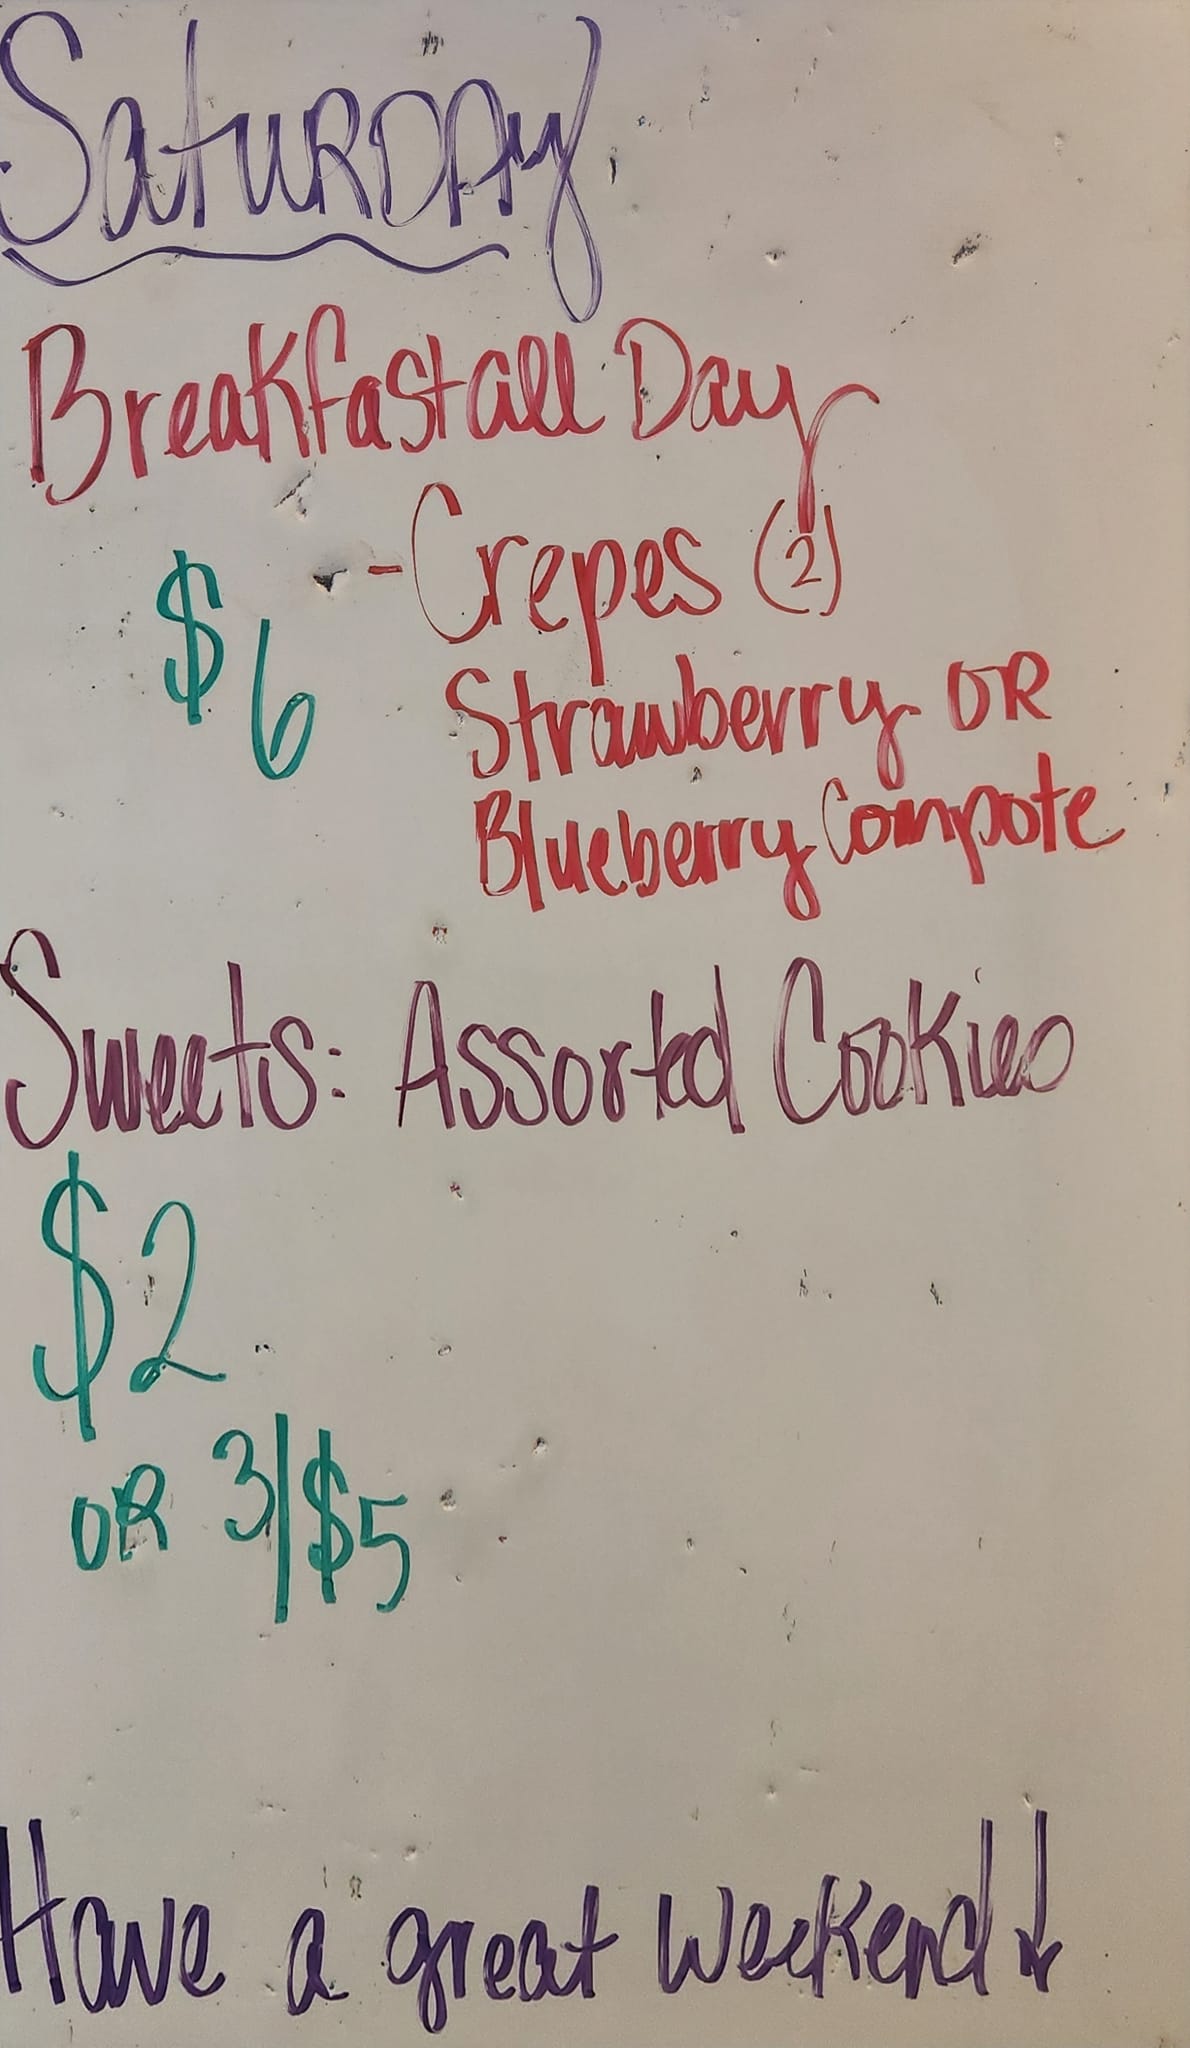 Saturday
Breakfast all Day
$6 - Crepes (2)
Strawberry OR
Blueberry Compote
Sweets: Assorted Cookies
$2
OR 3/$5
Have a great weekend!